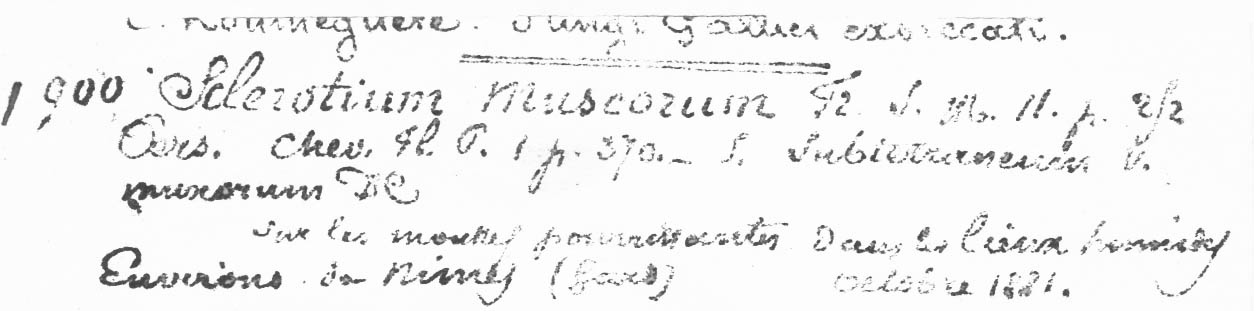 C. Roumeguère. Fungi Gallici exsiccati.
1900 Sclerotium Muscorum Fr. S. M. II. p.
Pers. Chev. Fl. P. 1 p. 370. _ S. Subterraneum V.
muscorum DC
Sur les mousses pourrissantes Dans les lieux humides
Environs de Nimes (Gard) Octobre 1881.